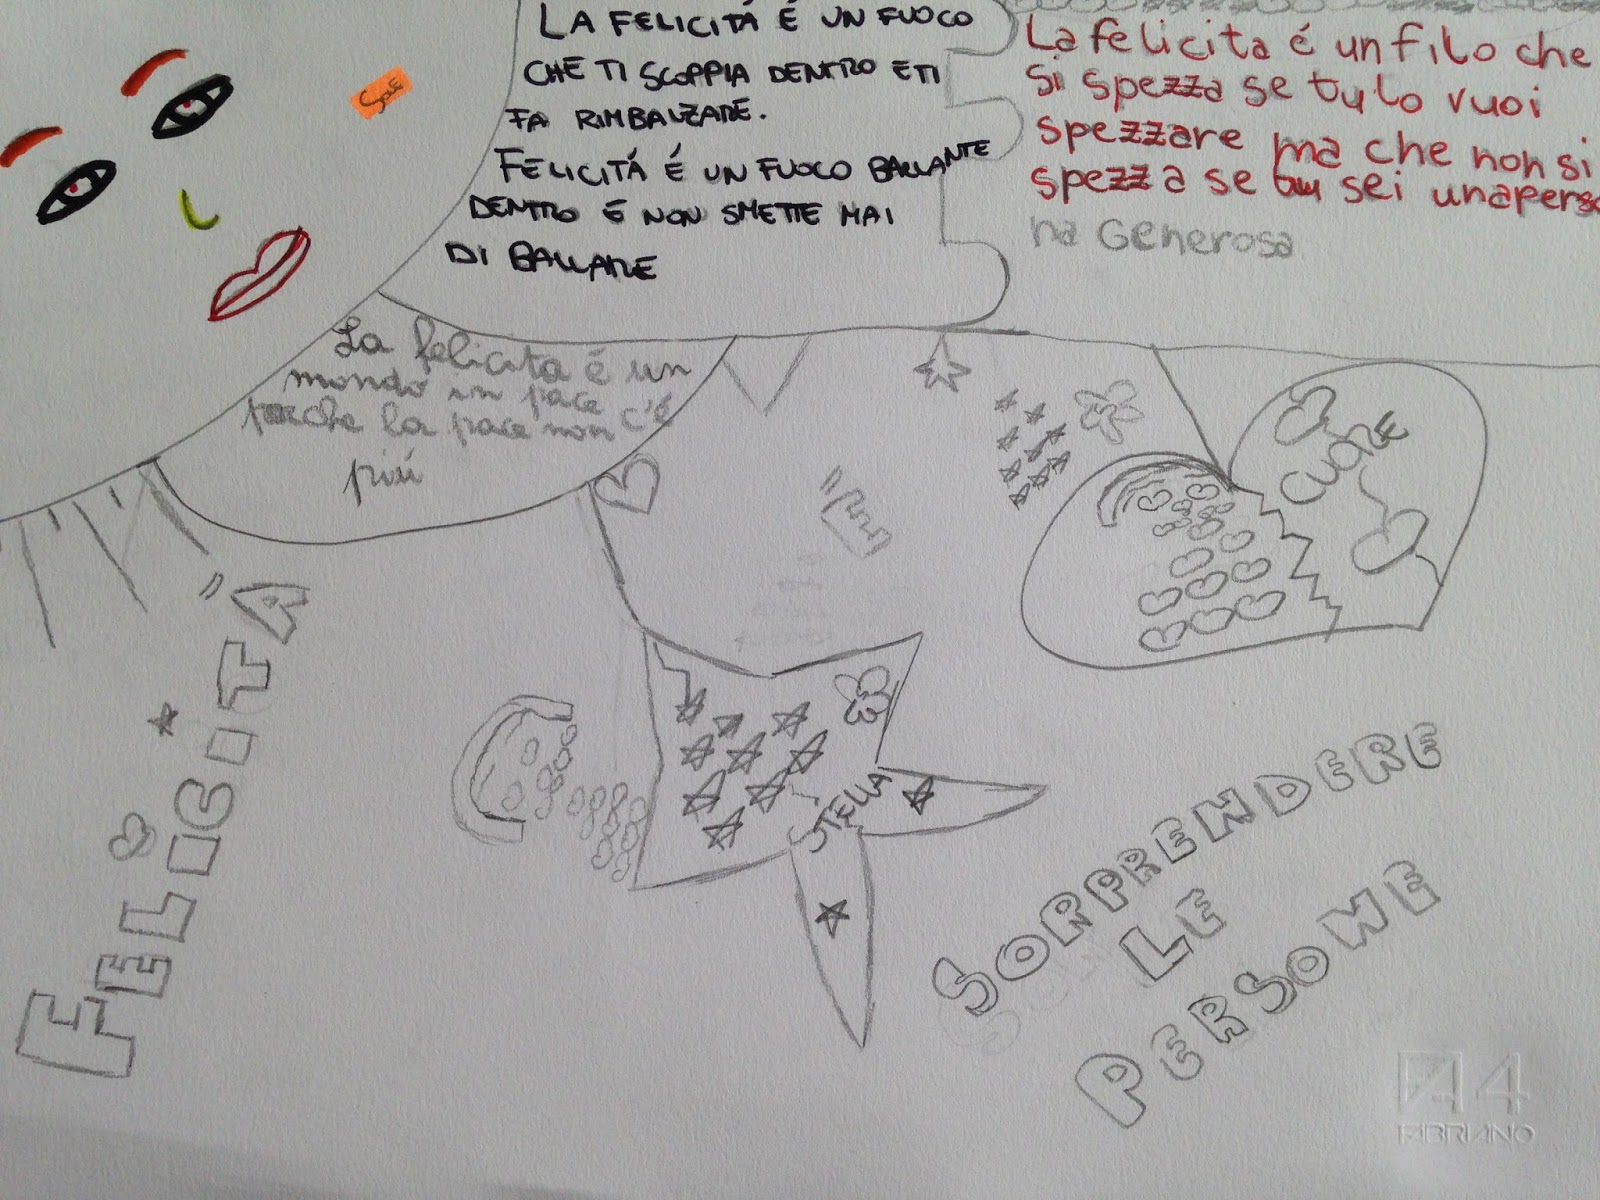 SOLE
LA FELICITÁ É UN FUOCO
CHE TI SCOPPIA DENTRO E TI
FA RIMBALZARE.
FELICITÁ É UN FUOCO BALLANTE
DENTRO E NON SMETTE MAI
DI BALLARE
La felicita é un filo che
si spezza se tu lo vuoi
spezzare ma che non si
spezza se tu sei una perso
na Generosa
La felicita é un
mondo in pace
perche la pace non c'é
piú
CUORE
É
FELICITÁ
STELLA
SORPRENDERE
LE
PERSONE
A4
FABRIANO